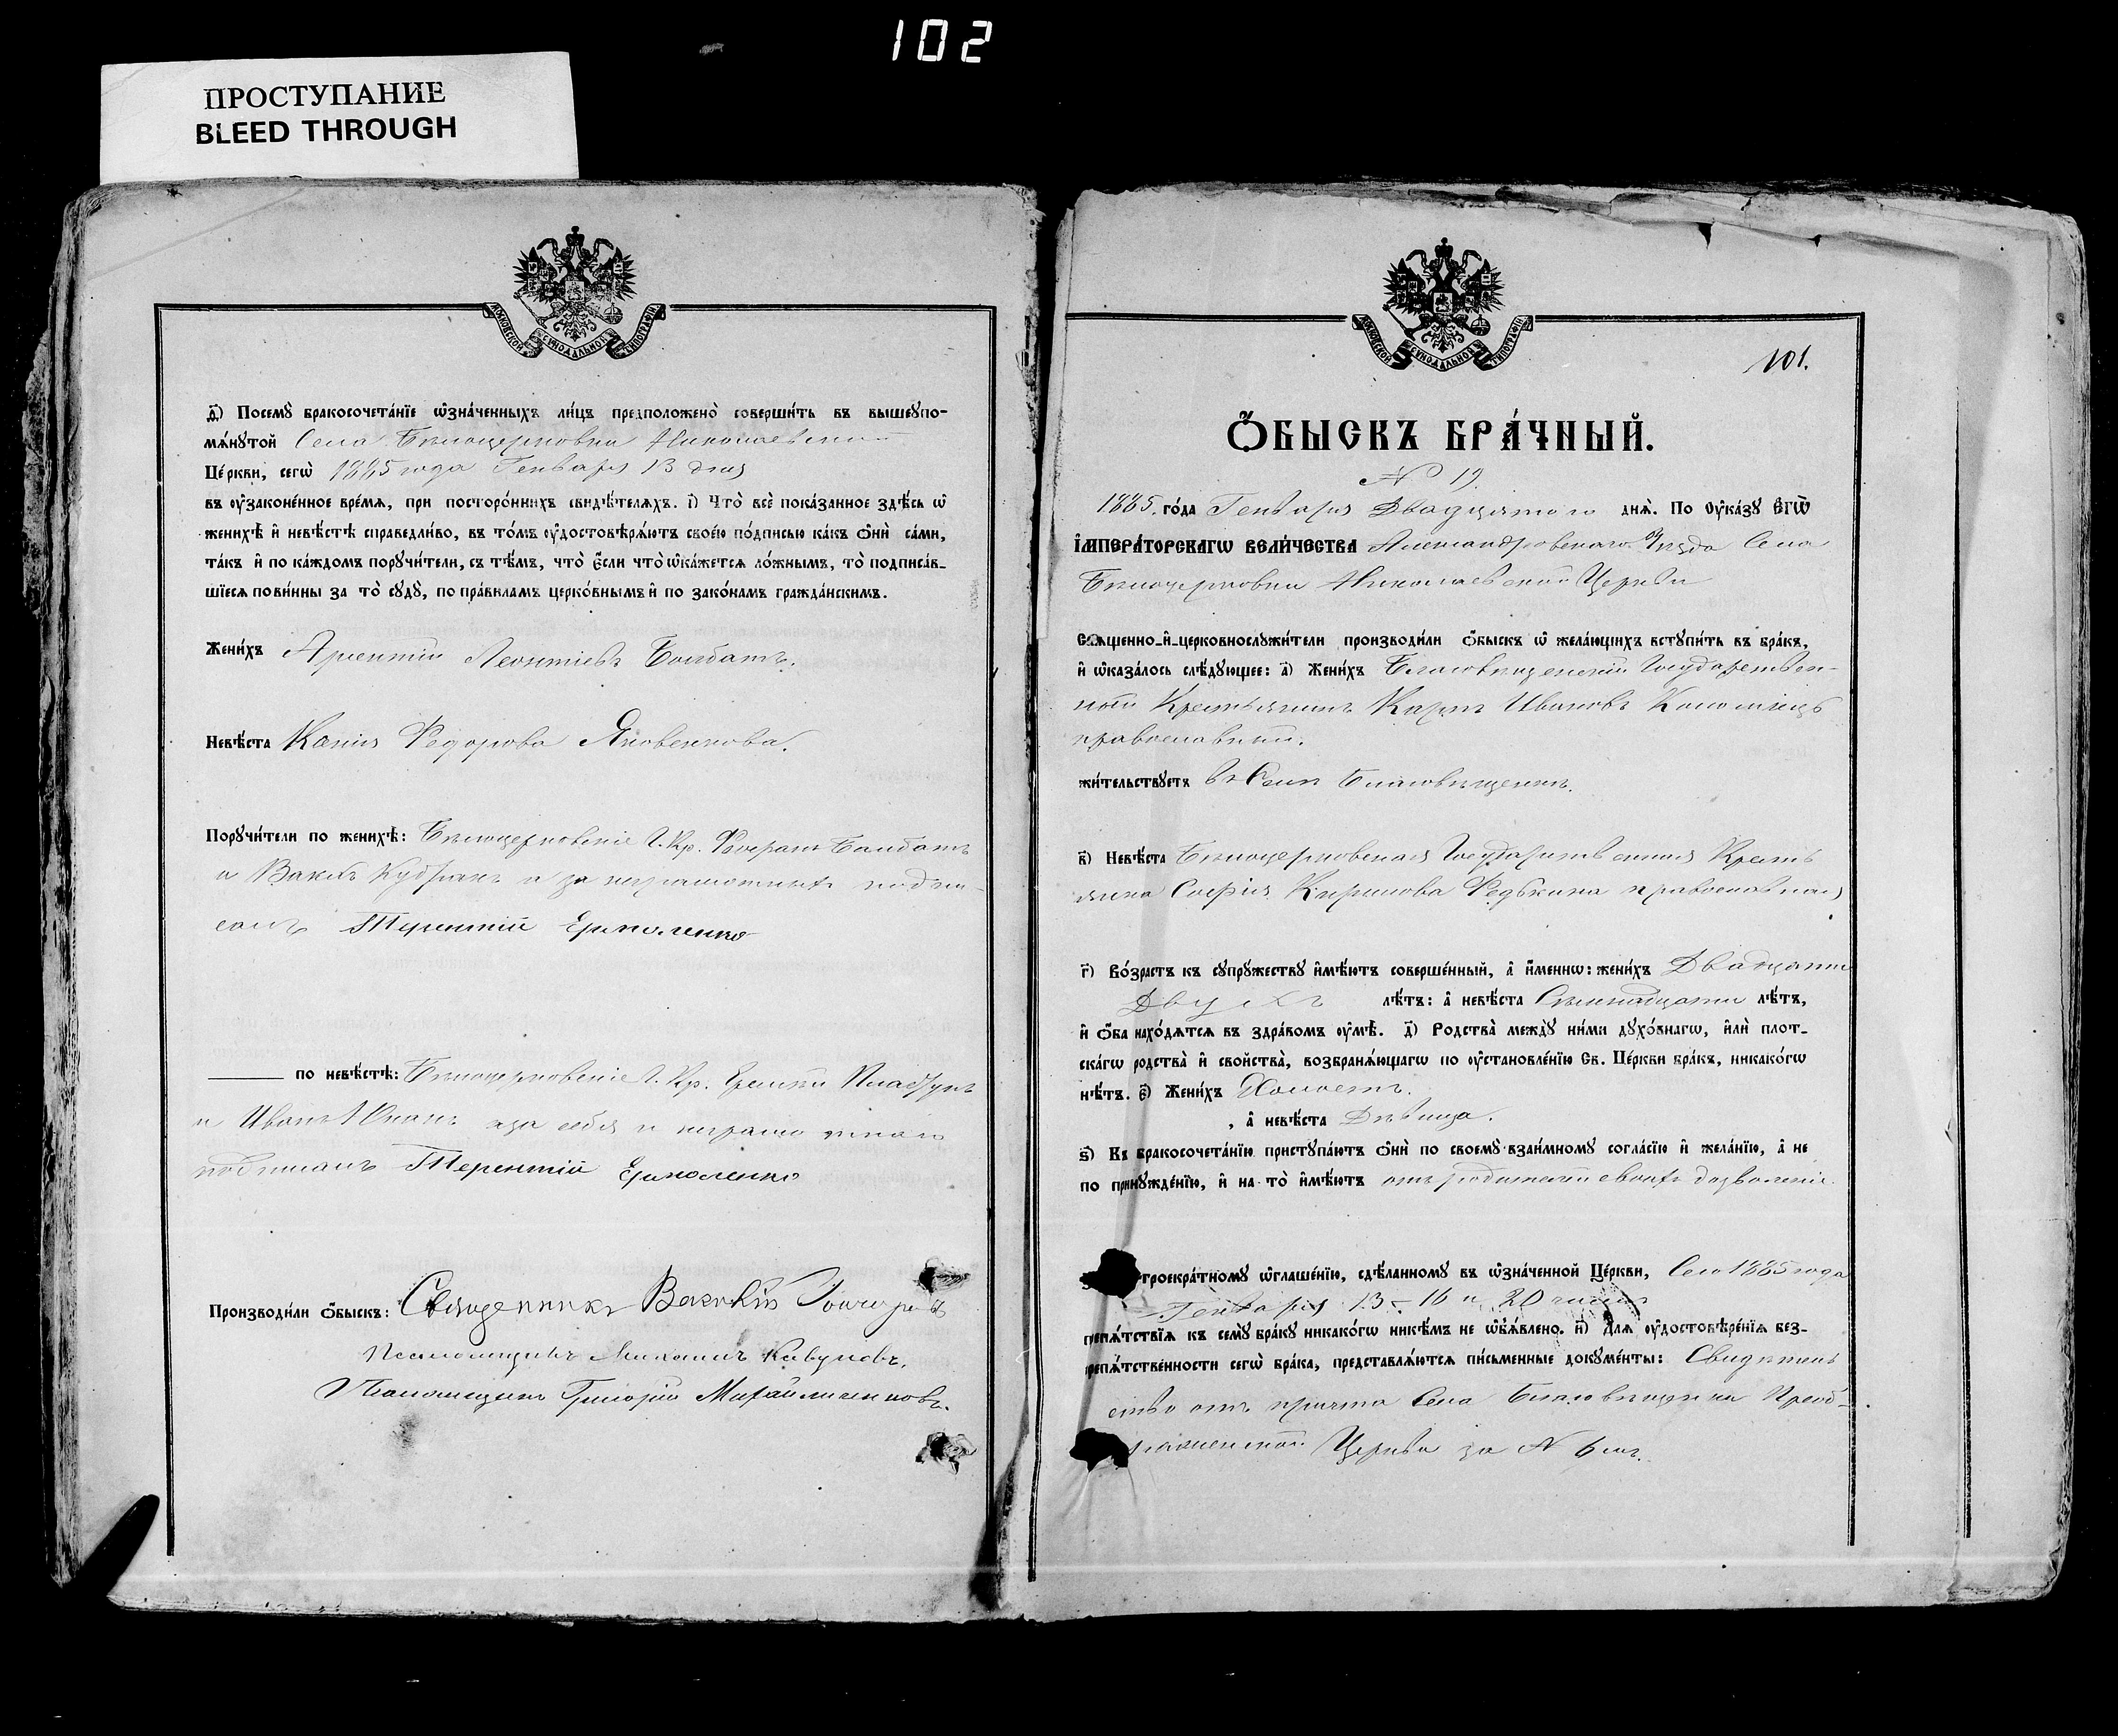 102
ПРОСТУПАНИЕ
BLEED THROUGH
МОСКОВСКОЙ СѴНОДАЛЬНОЙ ТИПОГРАФІИ
ѳ҃) Посемꙋ̀ бракосочета́нїе ѡ҆зна́ченныхъ ли́цъ предположено̀ соверши́ть въ вышеꙋпо-
мѧ́нꙋтой Села Бѣлоцерковки Николаевской
Це́ркви, сегѡ̀ 1885 года Генваря 13 дня
въ ᲂу҆законе́нное вре́мѧ, при посторо́ннихъ свидѣ́телѧхъ. і҃) Что̀ всѐ пока́занное здѣ́сь ѡ҆
женихѣ̀ и҆ невѣ́стѣ справедли́во, въ то́мъ ᲂу҆достовѣрѧ́ютъ свое́ю по́дписью ка́къ ѻ҆нѝ са́ми,
та́къ и҆ по ка́ждомъ порꙋчи́тели, съ тѣ́мъ, что̀ є҆́сли что̀ ѡ҆ка́жетсѧ ло́жнымъ, то̀ подписа́в-
шїесѧ пови́нны за то̀ сꙋдꙋ̀, по пра́виламъ церко́внымъ и҆ по зако́намъ гражда́нскимъ.
Жени́хъ Арсентій Леонтіевъ Балбатъ.
Невѣ́ста Ксенія Федорова Яковенкова.
Порꙋчи́тели по женихѣ̀: Бѣлоцерковскіе Г. Кр. Балбатъ
и за неграмотныхъ подпи-
салъ Терентій Ермоленко
по невѣ́стѣ: Бѣлоцерковскіе Г. Кр.
и Иванъ за себя и неграмотнаго
подписалъ Терентій Ермоленко
Производи́ли ѻ҆́быскъ: Священникъ
Псаломщикъ Михаилъ Кавуновъ.
Псаломщикъ Григорій
101.
Ѻ҆́БЫСКЪ БРА́ЧНЫЙ.
N 19.
1885. го́да Генваря Двадцятого днѧ̀. По ᲂу҆ка́зꙋ Є҆гѡ̀
І҆МПЕРА́ТОРСКАГѠ ВЕЛИ́ЧЕСТВА Александровскаго Уѣзда Села
Бѣлоцерковки Николаевской Церкви
Сщ҃е́нно-и҆-церковнослꙋжи́тели производи́ли ѻ҆́быскъ ѡ҆ жела́ющихъ встꙋпи́ть въ бра́къ,
и҆ ѡ҆каза́лось слѣ́дꙋющее: а҃) Жени́хъ Благовѣщенскій Государствен-
ной Крестьянинъ Карпъ Ивановъ Коломіецъ
православный.
жи́тельствꙋетъ въ Селѣ Благовѣщенкѣ.
в҃) Невѣ́ста Бѣлоцерковская Государственная Кресть
янка Софія Кирилова Федькина православная
г҃) Во́зрастъ къ сꙋпрꙋ́жествꙋ и҆мѣ́ютъ соверше́нный, а҆ и҆́меннѡ: жени́хъ Двадцати
Двухъ лѣ́тъ: а҆ невѣ́ста Съмнадцати лѣ́тъ,
и҆ ѻ҆́ба нахо́дѧтсѧ въ здра́вомъ ᲂу҆мѣ̀. д҃) Родства̀ междꙋ̀ ни́ми дꙋхо́внагѡ, и҆лѝ плот-
ска́гѡ родства̀ и҆ сво́йства̀, возбранѧ́ющагѡ по ᲂу҆становле́нїю Св. Це́ркви бра́къ, никако́гѡ
нѣ́тъ. є҃) Жени́хъ Холостъ.
, а҆ невѣ́ста Дѣвица.
ѕ҃) Къ бракосочета́нїю пристꙋпа́ютъ ѻ҆нѝ по своемꙋ̀ взаи́мномꙋ согла́сїю и҆ жела́нїю, а҆ не
по принꙋжде́нїю, и҆ на то̀ и҆мѣ́ютъ отъ родителей своихъ дозволеніе.
троекра́тномꙋ ѡ҆глаше́нїю, сдѣ́ланномꙋ въ ѡ҆зна́ченной Це́ркви, Сего 1885 года
Генваря 13 – 16 и 20 чиселъ
препѧ́тствїѧ къ семꙋ̀ бра́кꙋ никако́гѡ никѣ́мъ не ѡ҆б̾ѧ́влено. и҃) Длѧ ᲂу҆достовѣре́нїѧ без-
препѧ́тственности сегѡ̀ бра́ка, представлѧ́ютсѧ пи́сьменные докꙋме́нты: Свидѣтель
ство отъ причта Села Благовѣщенки Преоб-
раженской Церкви за N 6мъ.